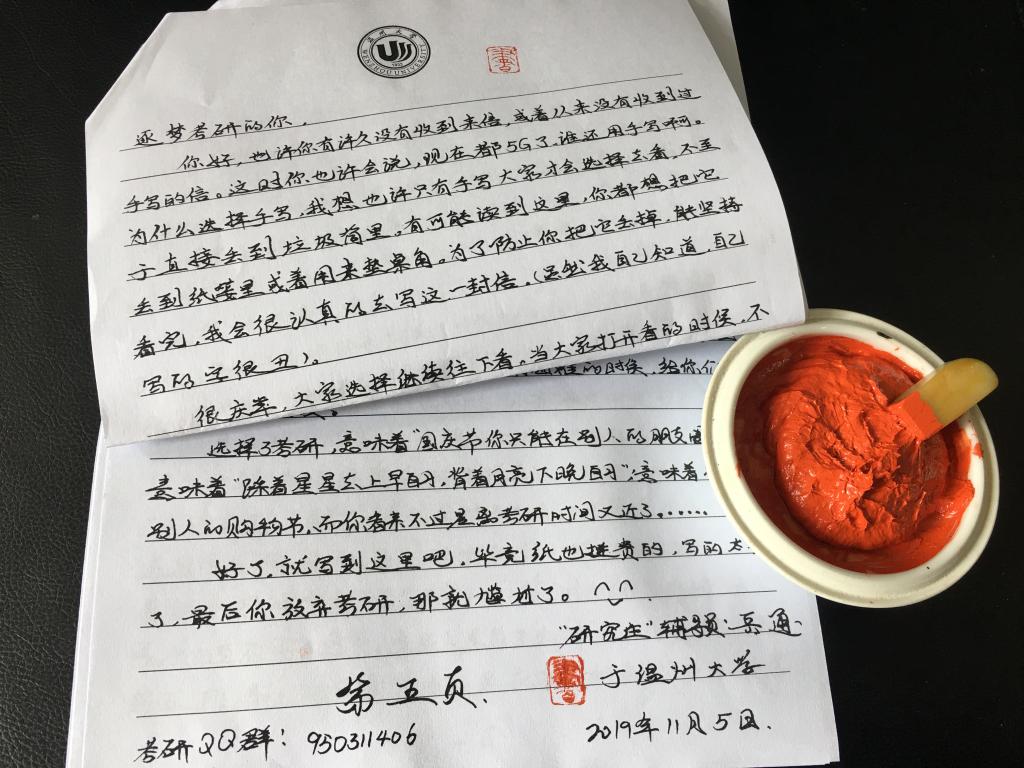 温州大学
WENZHOU UNIVERSITY
1933
逐梦考研的你，
你好，也许你有许久没有收到来信，或着从来没有收到过
手写的信。这时你也许会说，现在都5G了，谁还用手写啊。
为什么选择手写，我想也许只有手写大家才会选择去看，不至
于直接丢到垃圾筒里，有可能读到这里，你都想把它
丢到纸篓里或着用来垫桌角。为了防止你把它丢掉，能坚持
看完，我会很认真的去写这一封信，（虽然我自己知道，自己
写的字很丑）。
很庆幸，大家选择继续往下看。当大家打开看的时候，不
的时候，给你们
选择了考研，意味着“国庆节你只能在别人的朋友圈
意味着“踩着星星去上早自习，背着月亮下晚自习”，意味着
别人的购物节，而你看来不过是离考研时间又近了。……
好了，就写到这里吧，毕竟纸也挺贵的，写的太
了，最后你放弃考研，那就尴尬了。
“研究生”辅导员：岳通
于温州大学
第五页.
2019年11月5日.
考研QQ群：950311406